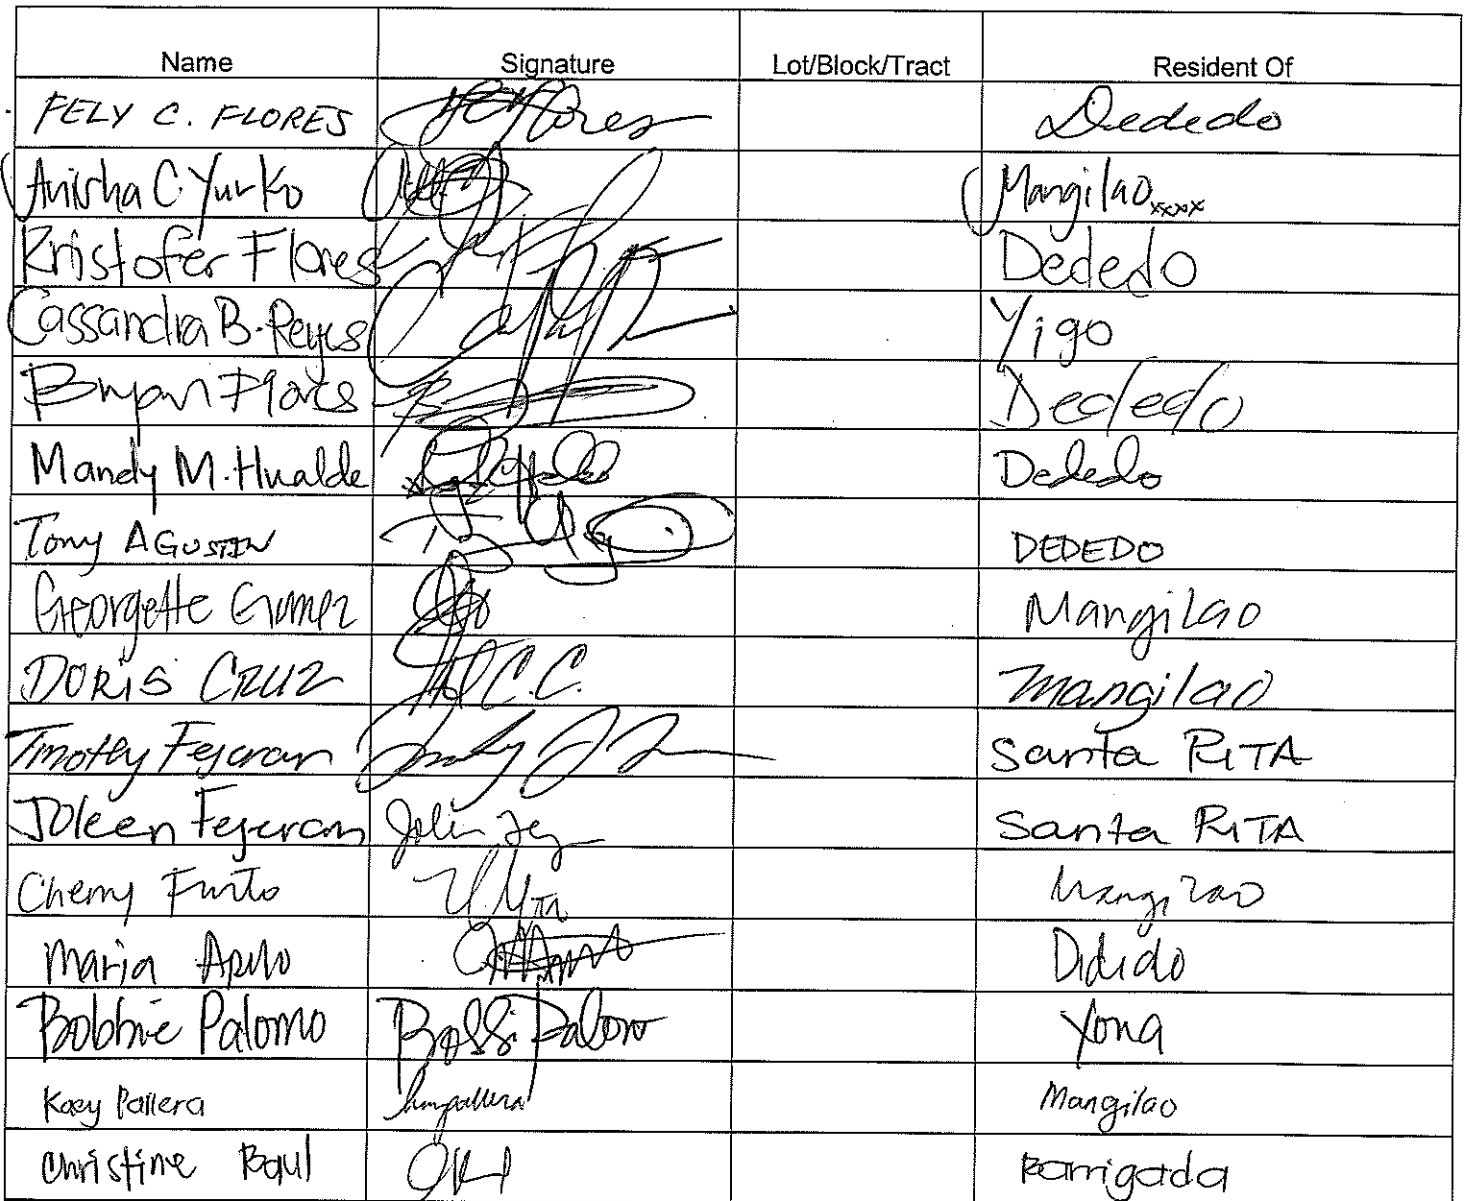 Name Signature Lot/Block/Tract Resident Of
FELY C. FLORES Dededo
Anisha C. Yurko Mangilao xxxx
Kristofer Flores Dededo
Cassandra B. Reyes Yigo
Bryan Flores Dededo
Mandy M. Hualde Dededo
Tony AGUSTIN DEDEDO
Georgette Gumez Mangilao
DORIS CRUZ C.C. Mangilao
Timothy Fejeran Santa RITA
Joleen Fejeran Santa RITA
Cherry Mangilao
Maria Didido
Bobbie Palomo Yona
Kaey Pallera Mangilao
Christine Baul Barrigada